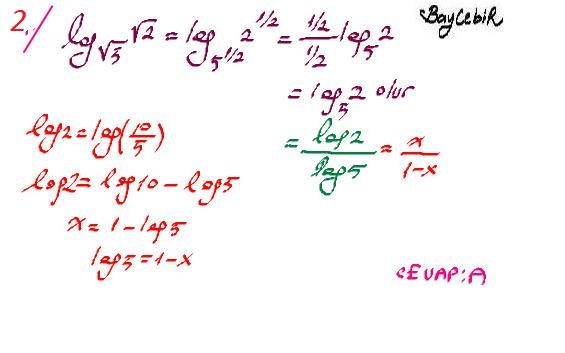 2./ log_√5 √2 = log_5^1/2 2^1/2 = (1/2)/(1/2) log_5 2
BayCebiR
= log_5 2 olur
= log2/log5 = x/1-x
log2 = log(10/5)
log2 = log10 - log5
x = 1 - log5
log5 = 1-x
CEVAP:A